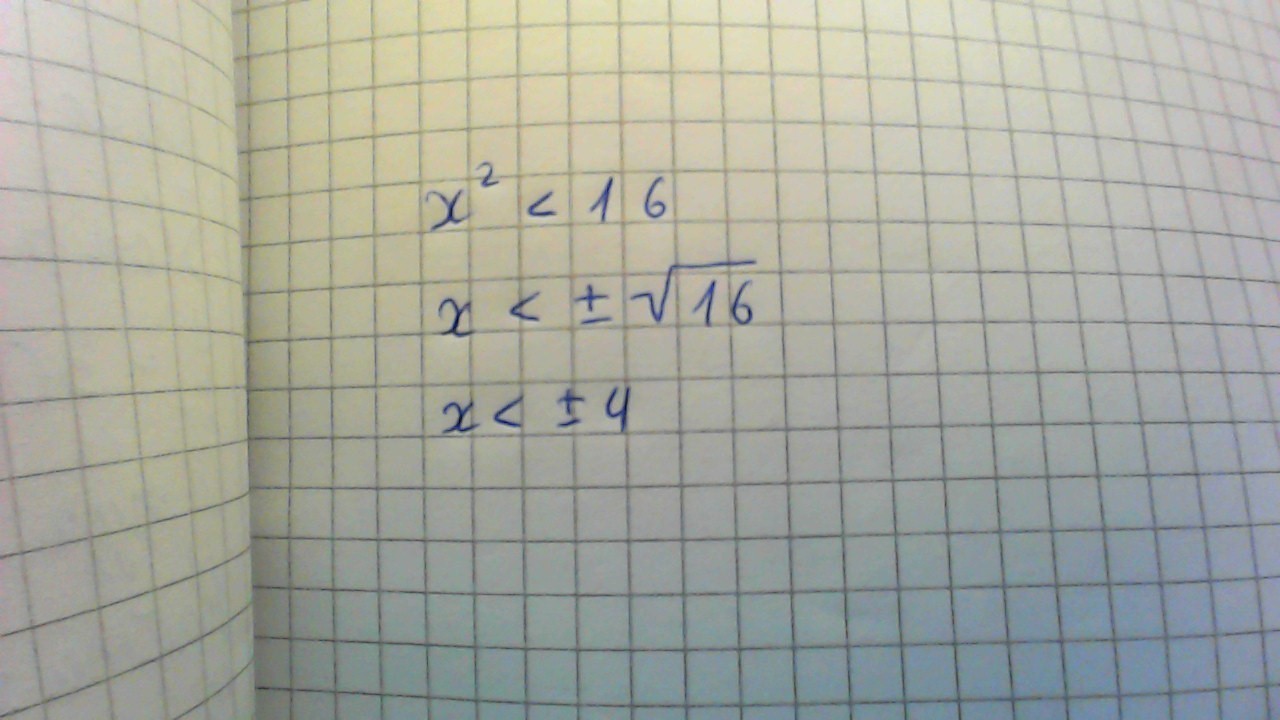 x² < 16
x < ± √16
x < ± 4